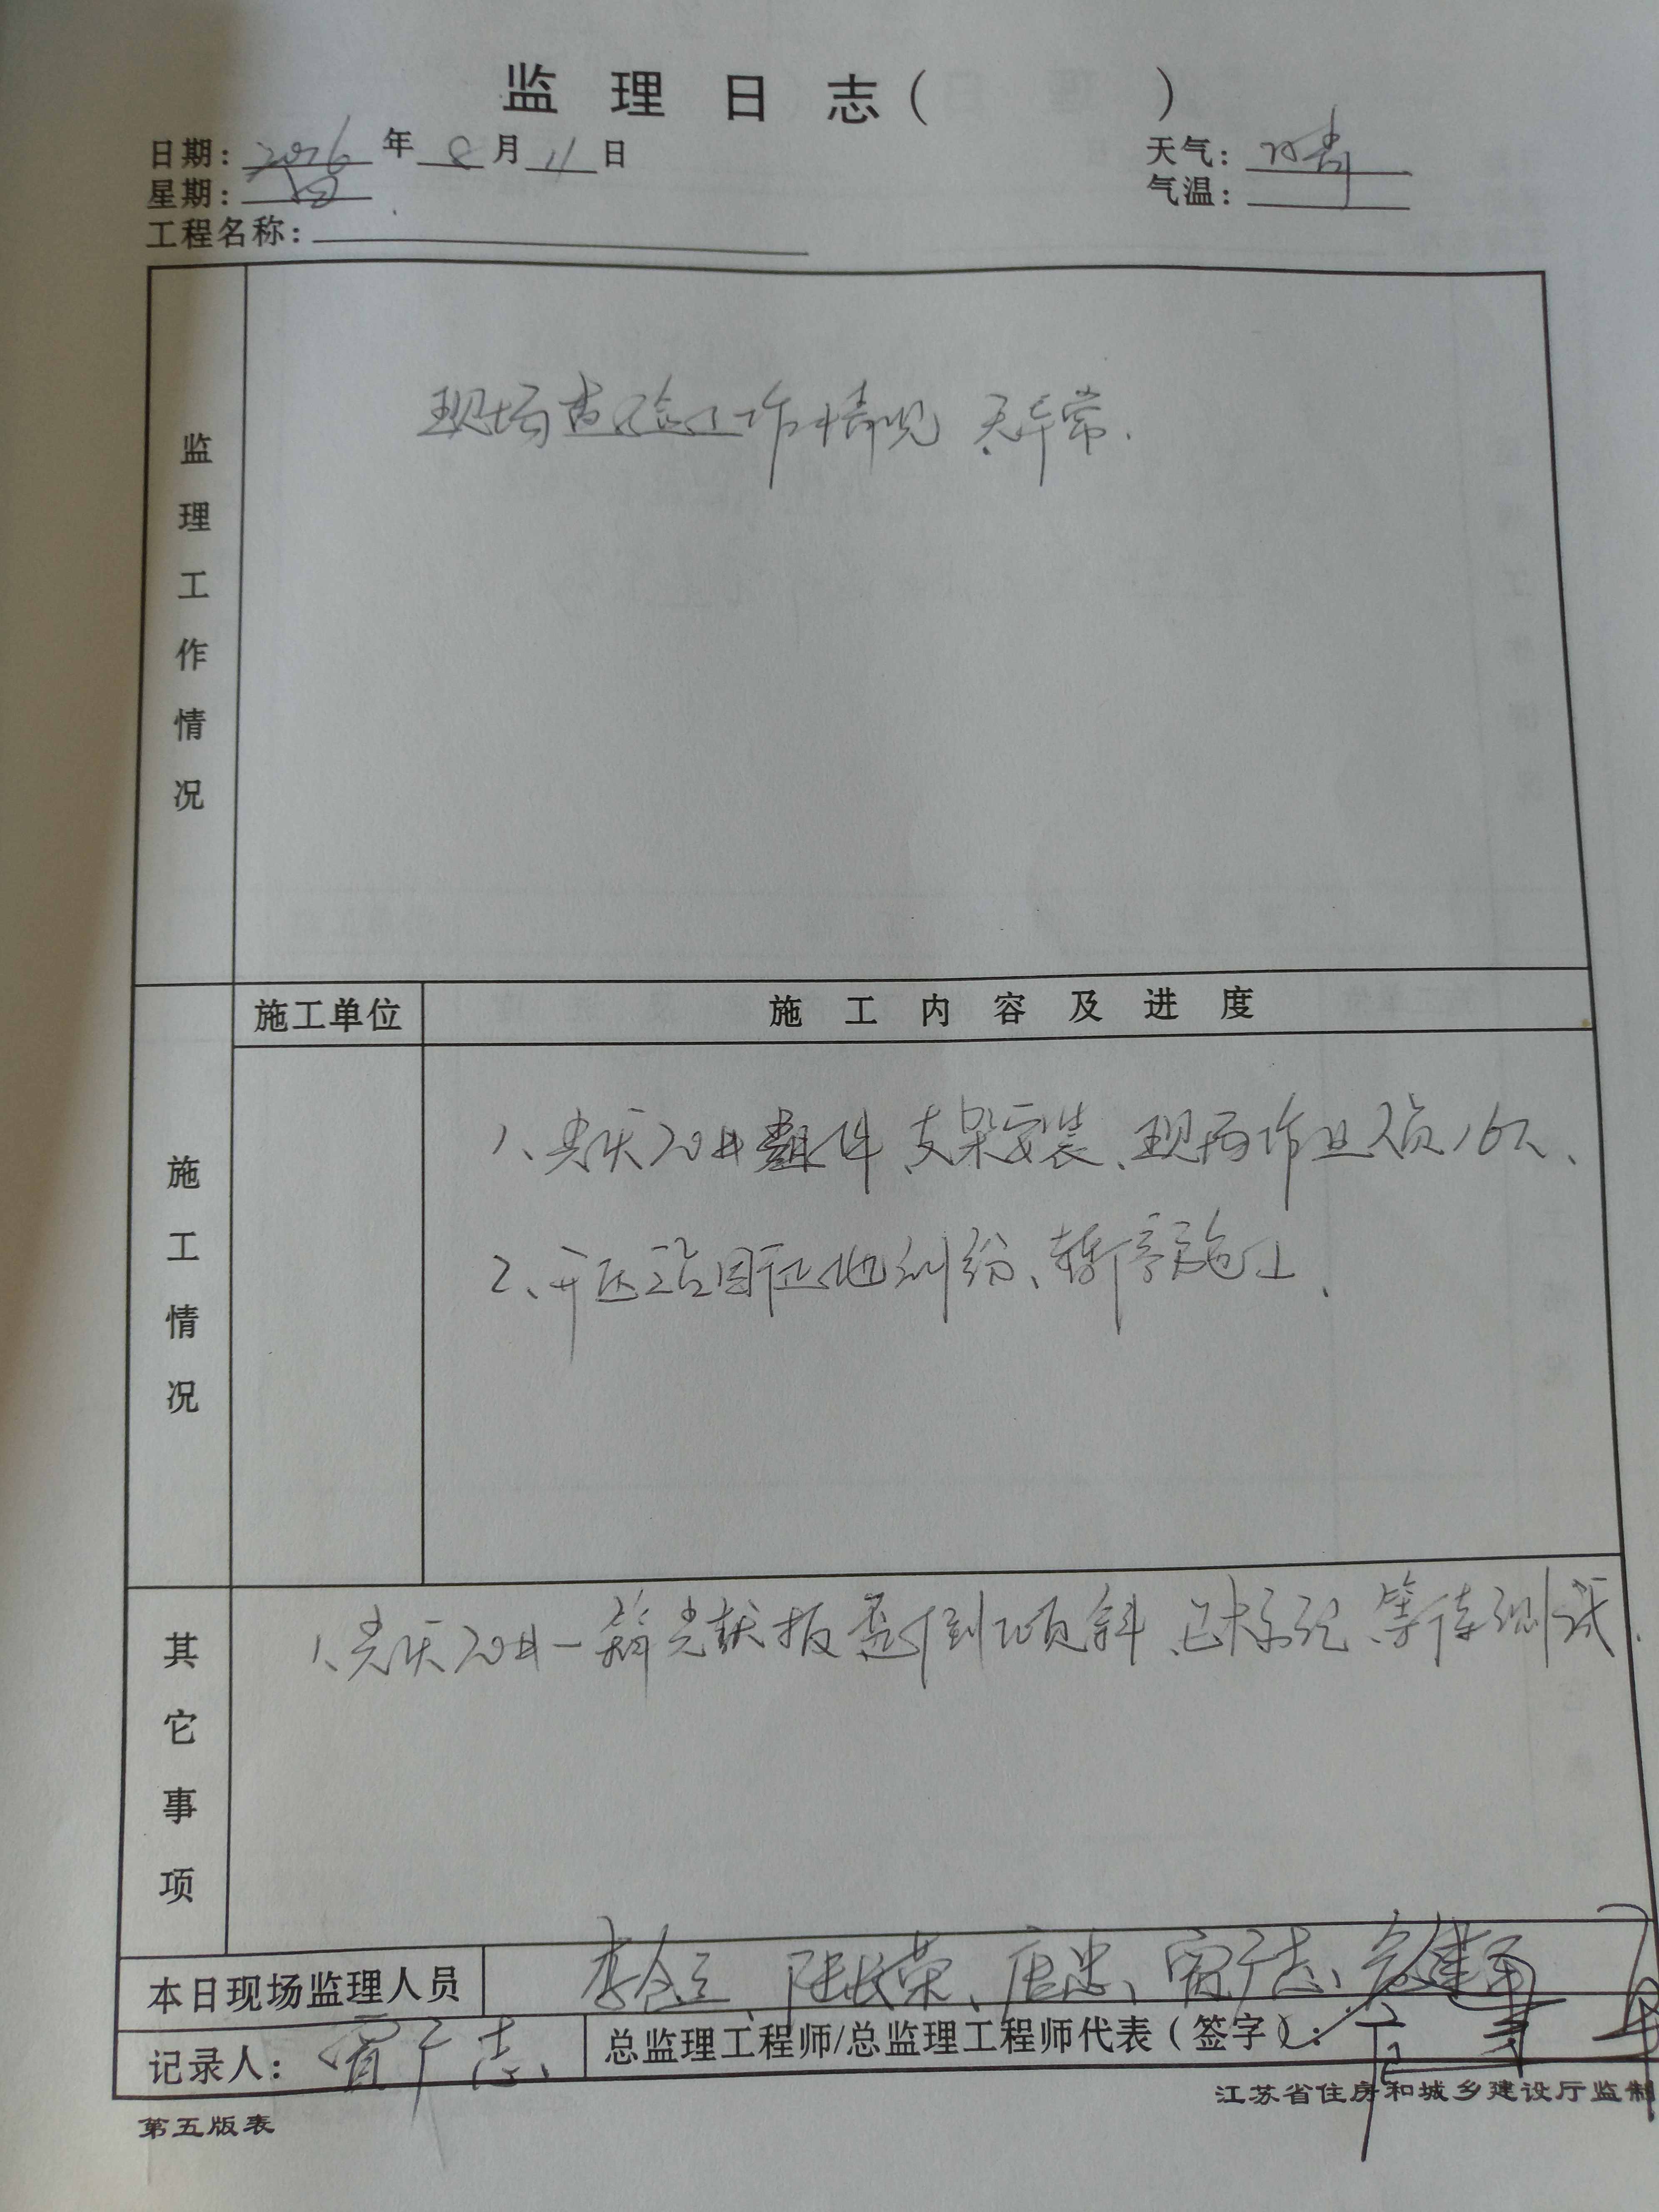 监理日志（ ）
日期：2026年8月11日 天气：晴
星期：四 气温：
工程名称：
监理工作情况
现场查验工作情况 无异常.
施工单位 施工内容及进度
施工情况
1、光伏20#组件支架安装、现场作业人员16人、
2、开压站因征地纠纷、暂停施工、
其它事项
1、光伏20#一箱光伏板歪倒倾斜、已标记、等待测试.
本日现场监理人员 李金立、陆长荣、唐忠、宿广志、
记录人：宿广志 总监理工程师/总监理工程师代表（签字）：
江苏省住房和城乡建设厅监制
第五版表